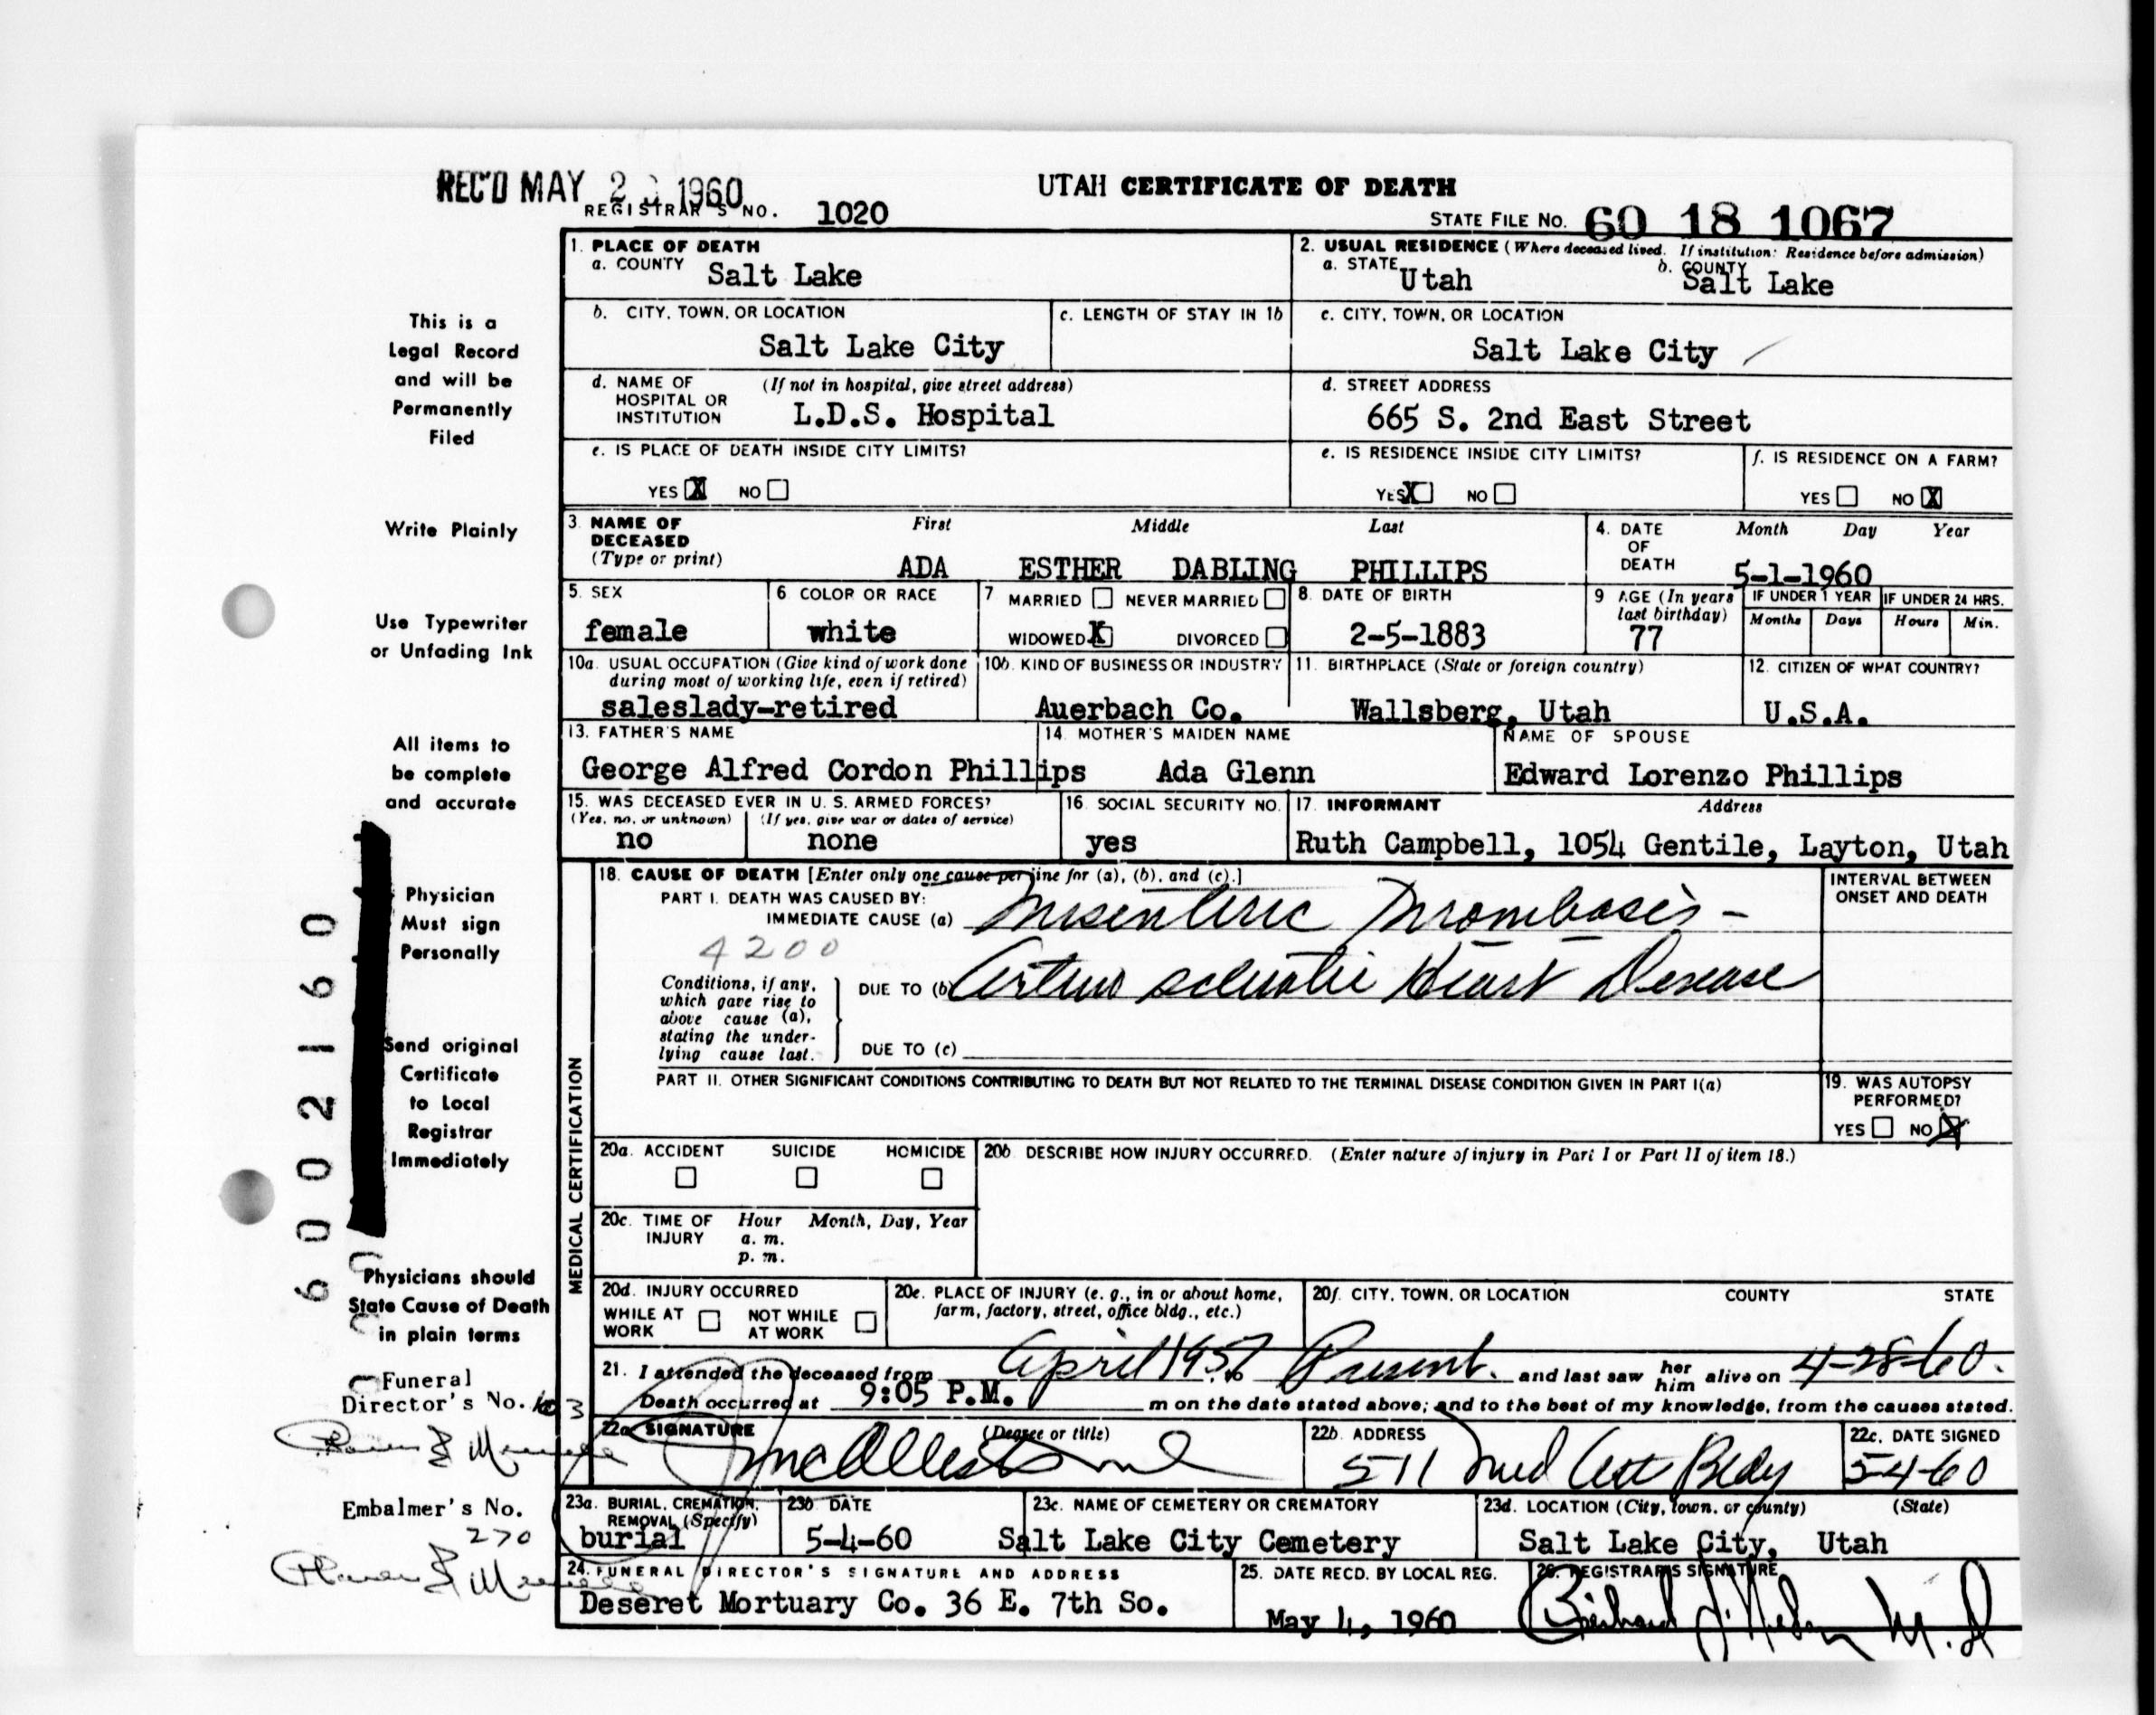 REC'D MAY 2 1960
UTAH CERTIFICATE OF DEATH
REGISTRAR'S NO. 1020
STATE FILE NO. 60 18 1067
1. PLACE OF DEATH
a. COUNTY Salt Lake
2. USUAL RESIDENCE (Where deceased lived. If institution: Residence before admission)
a. STATE Utah b. COUNTY Salt Lake
b. CITY, TOWN, OR LOCATION
Salt Lake City
c. LENGTH OF STAY IN 1b
c. CITY, TOWN, OR LOCATION
Salt Lake City
d. NAME OF HOSPITAL OR INSTITUTION (If not in hospital, give street address)
L.D.S. Hospital
d. STREET ADDRESS
665 S. 2nd East Street
e. IS PLACE OF DEATH INSIDE CITY LIMITS?
YES X NO
e. IS RESIDENCE INSIDE CITY LIMITS?
YES X NO
f. IS RESIDENCE ON A FARM?
YES NO X
3. NAME OF DECEASED (Type or print)
First Middle Last
ADA ESTHER DABLING PHILLIPS
4. DATE OF DEATH
Month Day Year
5-1-1960
5. SEX
female
6 COLOR OR RACE
white
7 MARRIED NEVER MARRIED
WIDOWED X DIVORCED
8. DATE OF BIRTH
2-5-1883
9 AGE (In years last birthday)
77
IF UNDER 1 YEAR
Months Days
IF UNDER 24 HRS.
Hours Min.
10a. USUAL OCCUPATION (Give kind of work done during most of working life, even if retired)
saleslady-retired
10b. KIND OF BUSINESS OR INDUSTRY
Auerbach Co.
11. BIRTHPLACE (State or foreign country)
Wallsberg, Utah
12. CITIZEN OF WHAT COUNTRY?
U.S.A.
13. FATHER'S NAME
George Alfred Cordon Phillips
14. MOTHER'S MAIDEN NAME
Ada Glenn
NAME OF SPOUSE
Edward Lorenzo Phillips
15. WAS DECEASED EVER IN U. S. ARMED FORCES?
(Yes, no, or unknown) (If yes, give war or dates of service)
no none
16. SOCIAL SECURITY NO.
yes
17. INFORMANT Address
Ruth Campbell, 1054 Gentile, Layton, Utah
MEDICAL CERTIFICATION
18. CAUSE OF DEATH [Enter only one cause per line for (a), (b), and (c).]
PART I. DEATH WAS CAUSED BY:
IMMEDIATE CAUSE (a) Mesenteric Thrombosis -
4200
Conditions, if any, which gave rise to above cause (a), stating the underlying cause last.
DUE TO (b) Arterio sclerotic Heart Disease
DUE TO (c)
INTERVAL BETWEEN ONSET AND DEATH
PART II. OTHER SIGNIFICANT CONDITIONS CONTRIBUTING TO DEATH BUT NOT RELATED TO THE TERMINAL DISEASE CONDITION GIVEN IN PART I(a)
19. WAS AUTOPSY PERFORMED?
YES NO X
20a. ACCIDENT SUICIDE HOMICIDE
20b DESCRIBE HOW INJURY OCCURRED. (Enter nature of injury in Part I or Part II of item 18.)
20c. TIME OF INJURY Hour Month, Day, Year
a. m.
p. m.
20d. INJURY OCCURRED
WHILE AT WORK NOT WHILE AT WORK
20e. PLACE OF INJURY (e. g., in or about home, farm, factory, street, office bldg., etc.)
20f. CITY, TOWN, OR LOCATION COUNTY STATE
21. I attended the deceased from April 1957 to Present. and last saw her him alive on 4-28-60.
Death occurred at 9:05 P.M. m on the date stated above; and to the best of my knowledge, from the causes stated.
22a. SIGNATURE (Degree or title)
22b. ADDRESS
511 Med Arts Bldg
22c. DATE SIGNED
5-4-60
23a. BURIAL, CREMATION, REMOVAL (Specify)
burial
23b DATE
5-4-60
23c. NAME OF CEMETERY OR CREMATORY
Salt Lake City Cemetery
23d. LOCATION (City, town, or county) (State)
Salt Lake City, Utah
24. FUNERAL DIRECTOR'S SIGNATURE AND ADDRESS
Deseret Mortuary Co. 36 E. 7th So.
25. DATE RECD. BY LOCAL REG.
May 4, 1960
26. REGISTRAR'S SIGNATURE
This is a
Legal Record
and will be
Permanently
Filed
Write Plainly
Use Typewriter
or Unfading Ink
All items to
be complete
and accurate
Physician
Must sign
Personally
Send original
Certificate
to Local
Registrar
Immediately
Physicians should
State Cause of Death
in plain terms
Funeral
Director's No.
Embalmer's No.
270
6002160